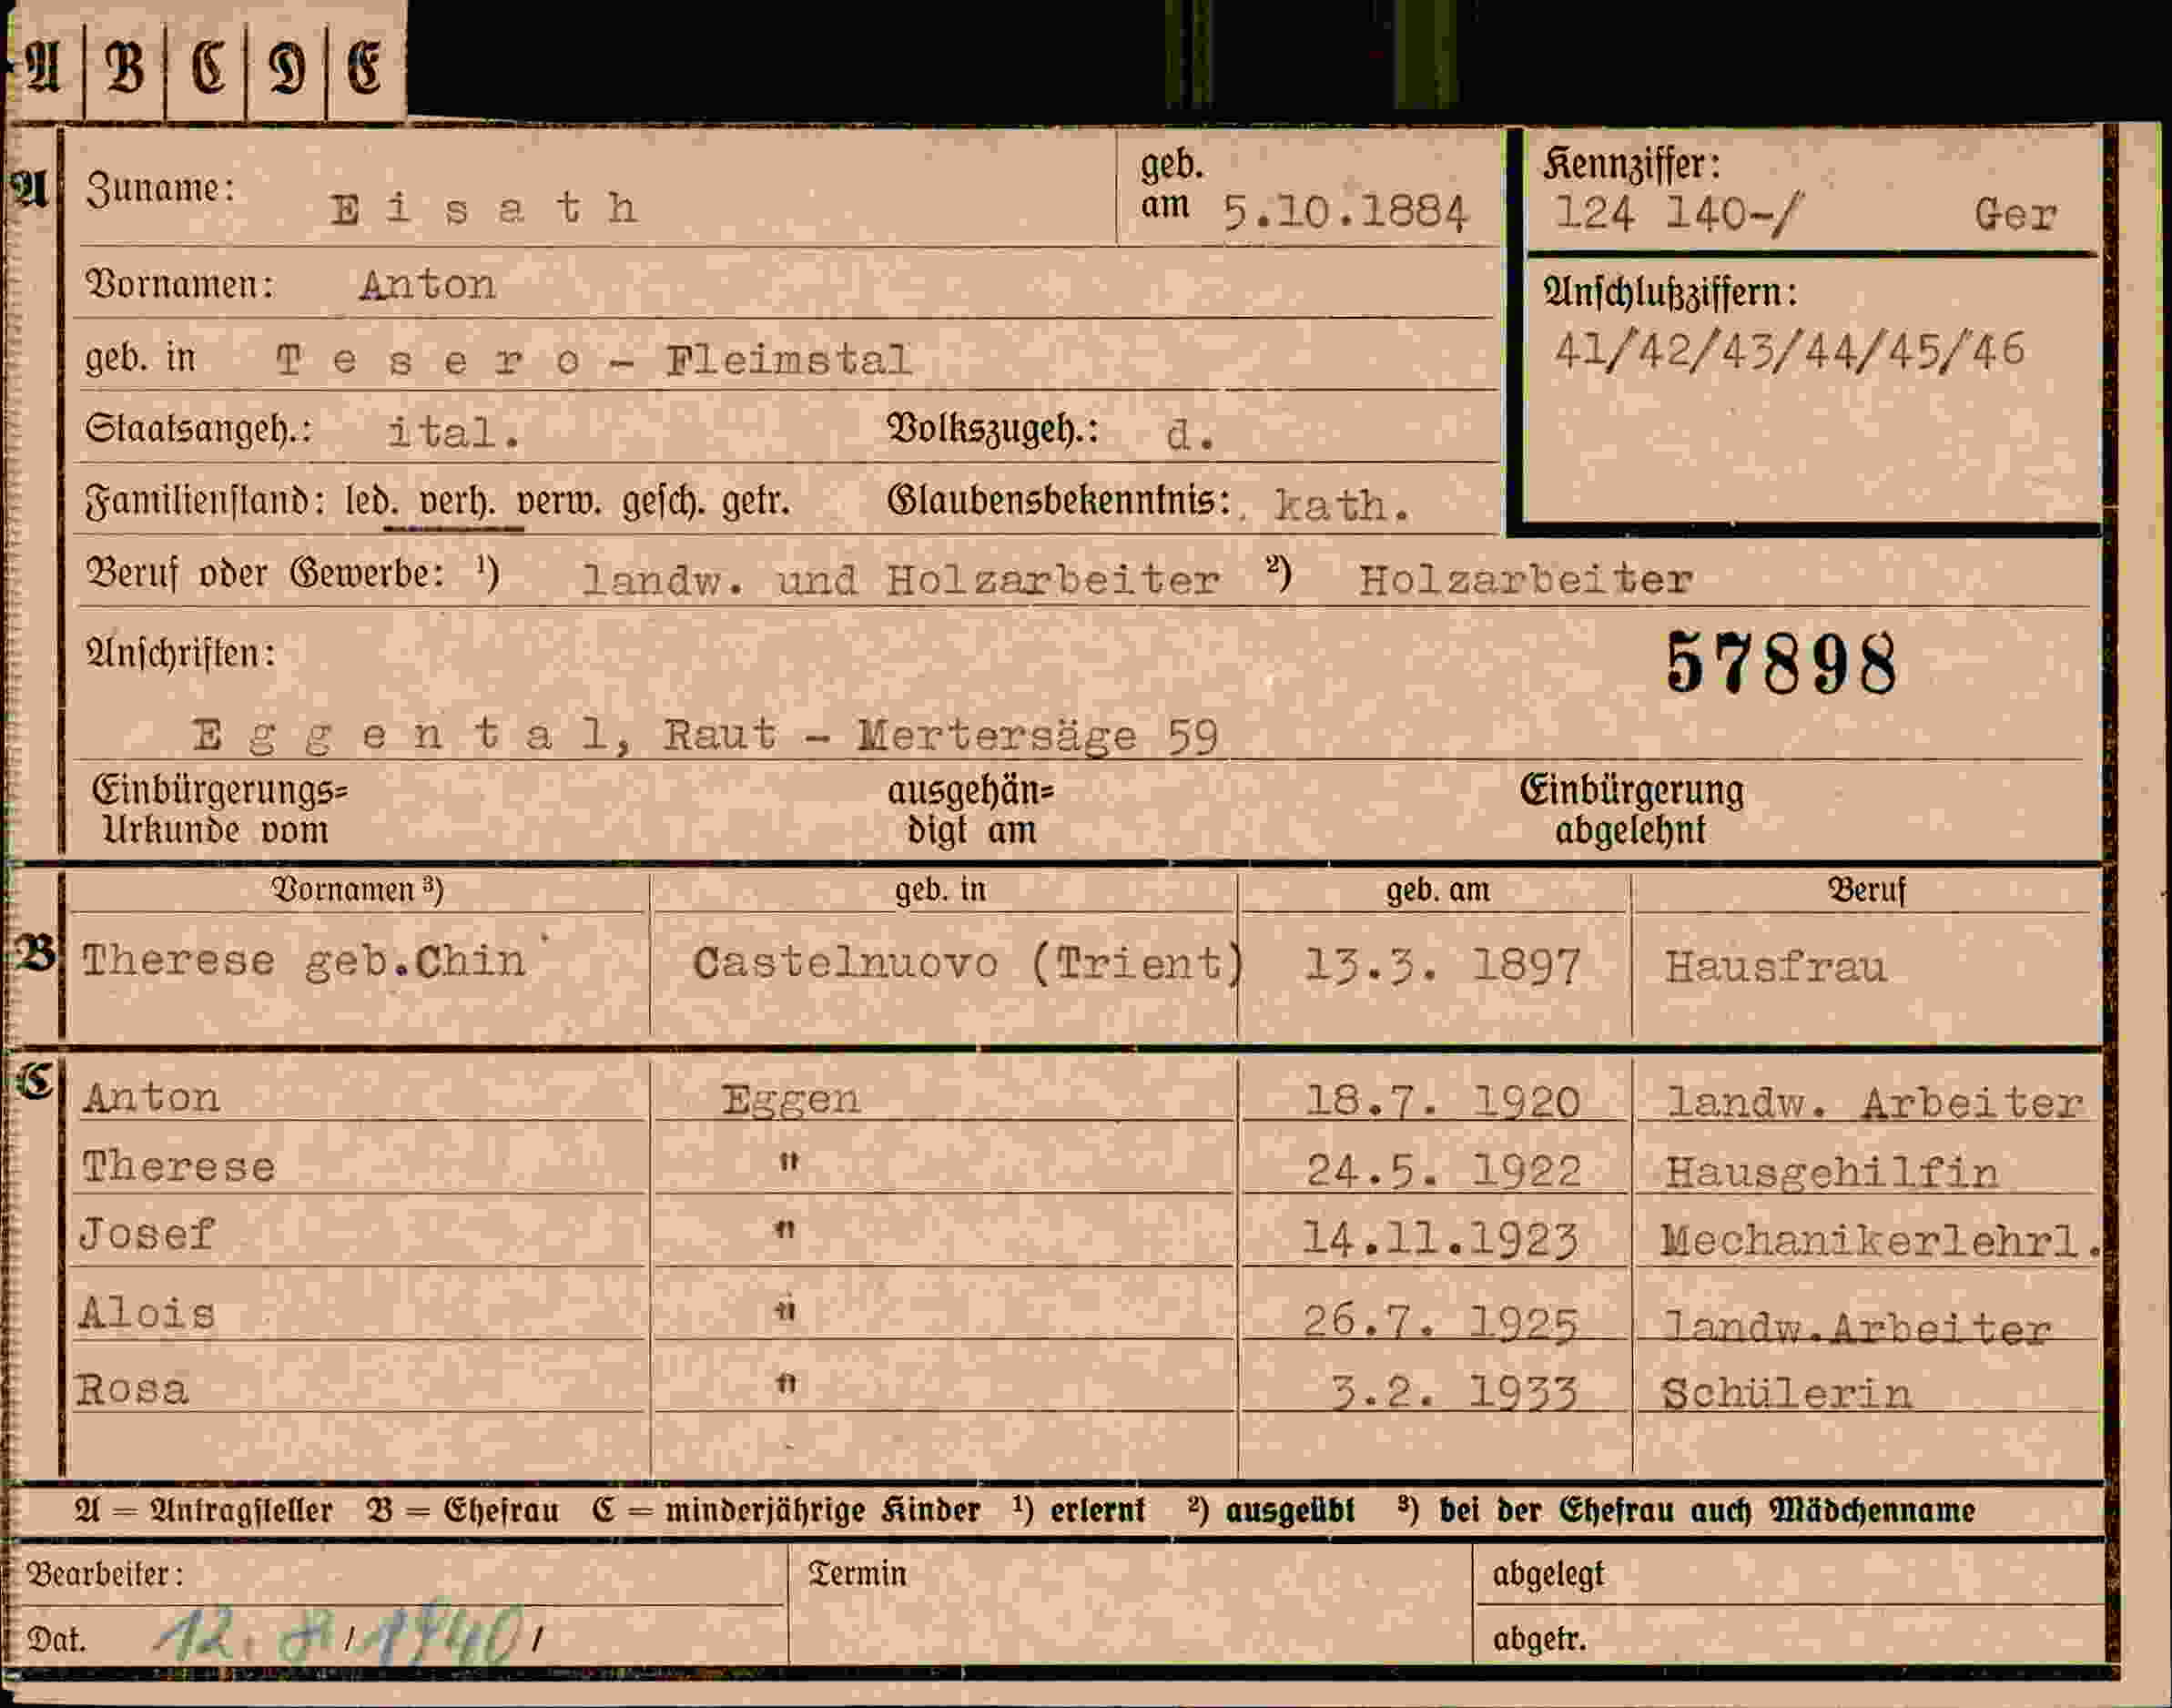 A B C D E
A Zuname: Eisath geb. am 5.10.1884 Kennziffer: 124 140-/ Ger
Vornamen: Anton Anschlußziffern:
geb. in Tesero - Fleimstal 41/42/43/44/45/46
Staatsangeh.: ital. Volkszugeh.: d.
Familienstand: led. verh. verw. gesch. getr. Glaubensbekenntnis: kath.
Beruf oder Gewerbe: ¹) landw. und Holzarbeiter ²) Holzarbeiter
Anschriften: 57898
Eggental, Raut - Mertersäge 59
Einbürgerungs= ausgehän= Einbürgerung
Urkunde vom digt am abgelehnt
Vornamen ³) geb. in geb. am Beruf
B Therese geb.Chin Castelnuovo (Trient) 13.3. 1897 Hausfrau
C Anton Eggen 18.7. 1920 landw. Arbeiter
Therese " 24.5. 1922 Hausgehilfin
Josef " 14.11.1923 Mechanikerlehrl.
Alois " 26.7. 1925 landw.Arbeiter
Rosa " 3.2. 1933 Schülerin
A = Antragsteller B = Ehefrau C = minderjährige Kinder ¹) erlernt ²) ausgeübt ³) bei der Ehefrau auch Mädchenname
Bearbeiter: Termin abgelegt
Dat. 12. 8/1940/ abgetr.